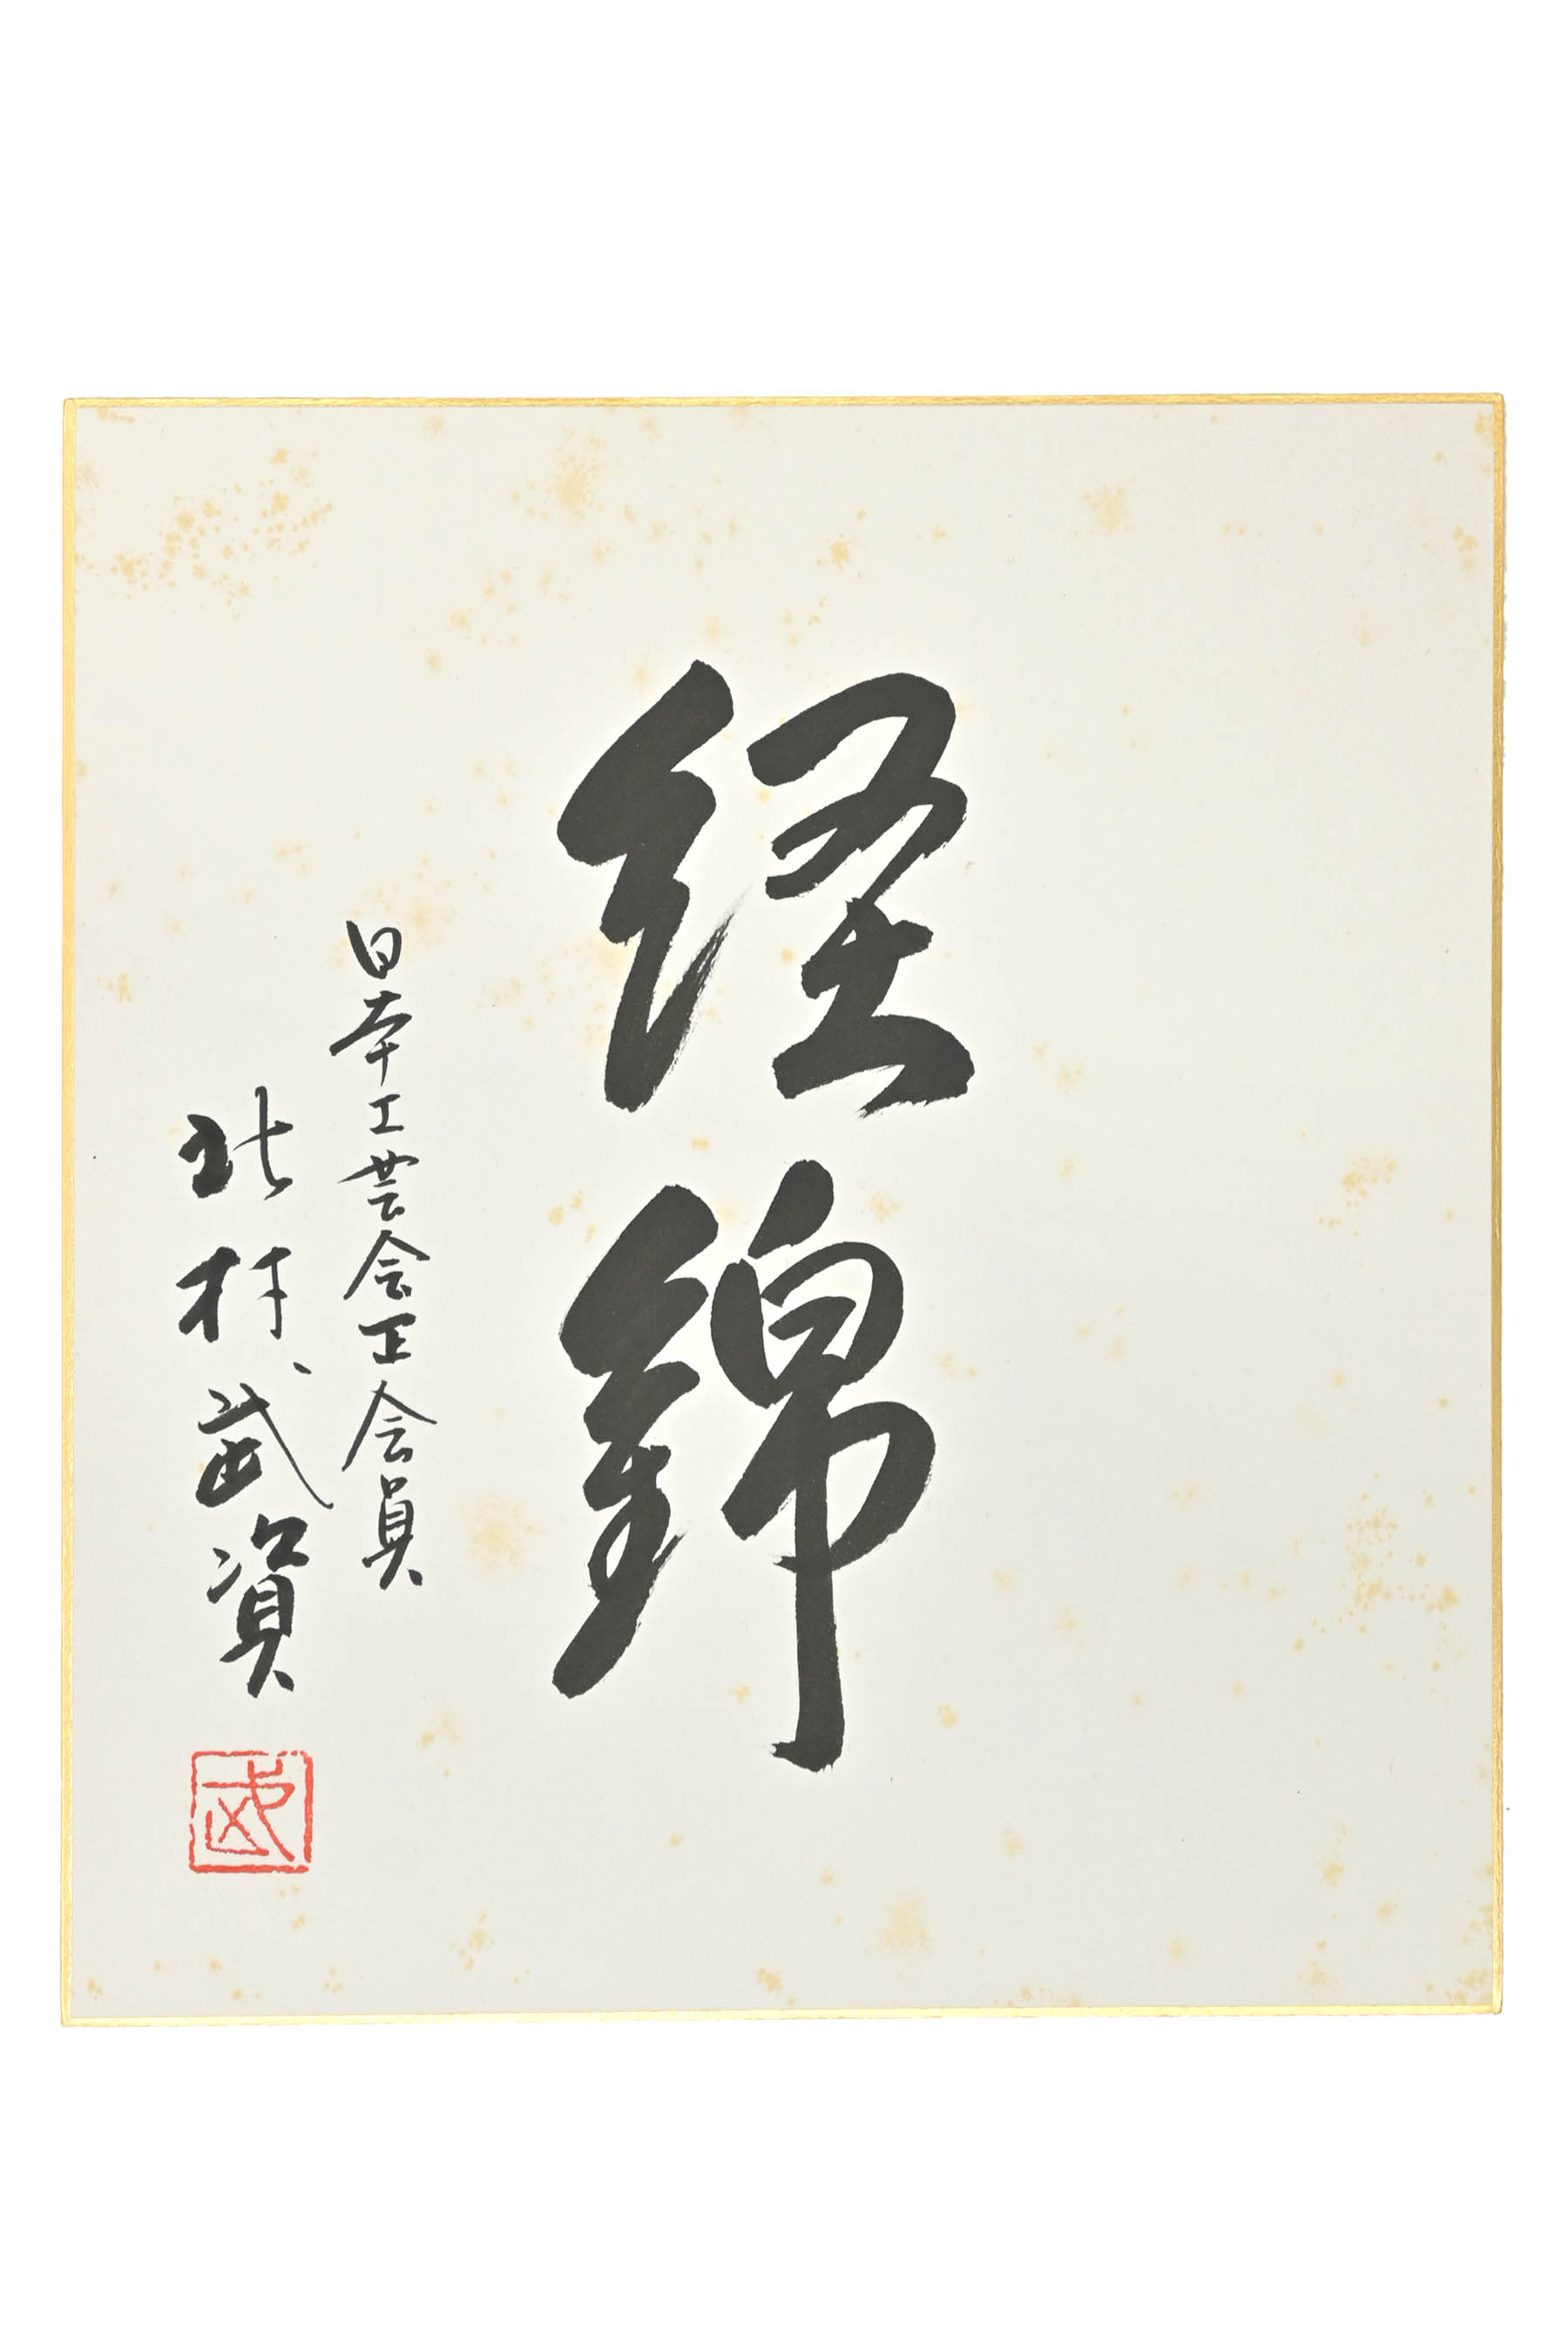 経錦
日本工芸会正会員
北村武資
武